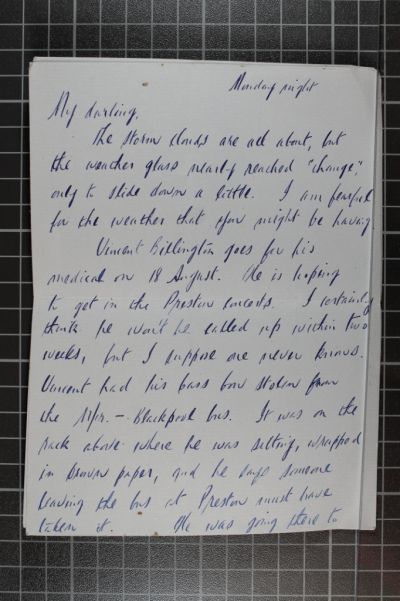 Monday night
My darling,
The storm clouds are all about, but
the weather glass nearly reached "change,"
only to slide down a little. I am fearful
for the weather that you might be having.
Vincent Billington goes for his
medical on 18 August. He is hoping
to get in the Preston concerts. I certainly
think he won't be called up within two
weeks, but I suppose one never knows.
Vincent had his bass bow stolen from
the M/r. - Blackpool bus. It was on the
rack above where he was sitting, wrapped
in brown paper, and he says someone
leaving the bus at Preston must have
taken it. He was going there to